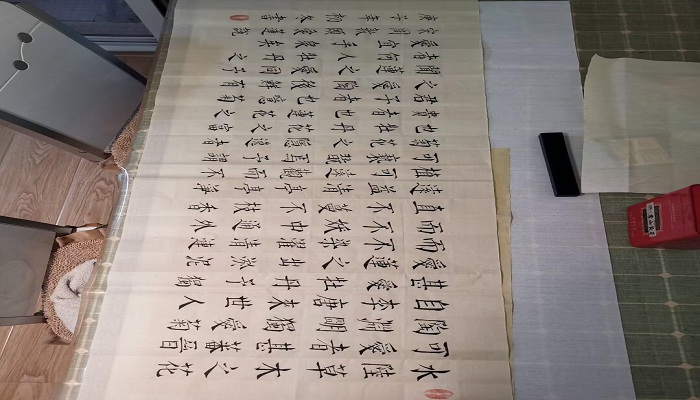 水陸草木之花
可愛者甚蕃晉
陶淵明獨愛菊
自李唐來世人
甚愛牡丹予獨
愛蓮之出淤泥
而不染濯清漣
而不妖中通外
直不蔓不枝香
遠益清亭亭淨
植可遠觀而不
可褻玩焉予謂
菊花之隱逸者
也牡丹花之富
貴者也蓮花之
君子者也噫菊
之愛陶後鮮有
聞蓮之愛同予
者何人牡丹之
愛宜乎眾矣